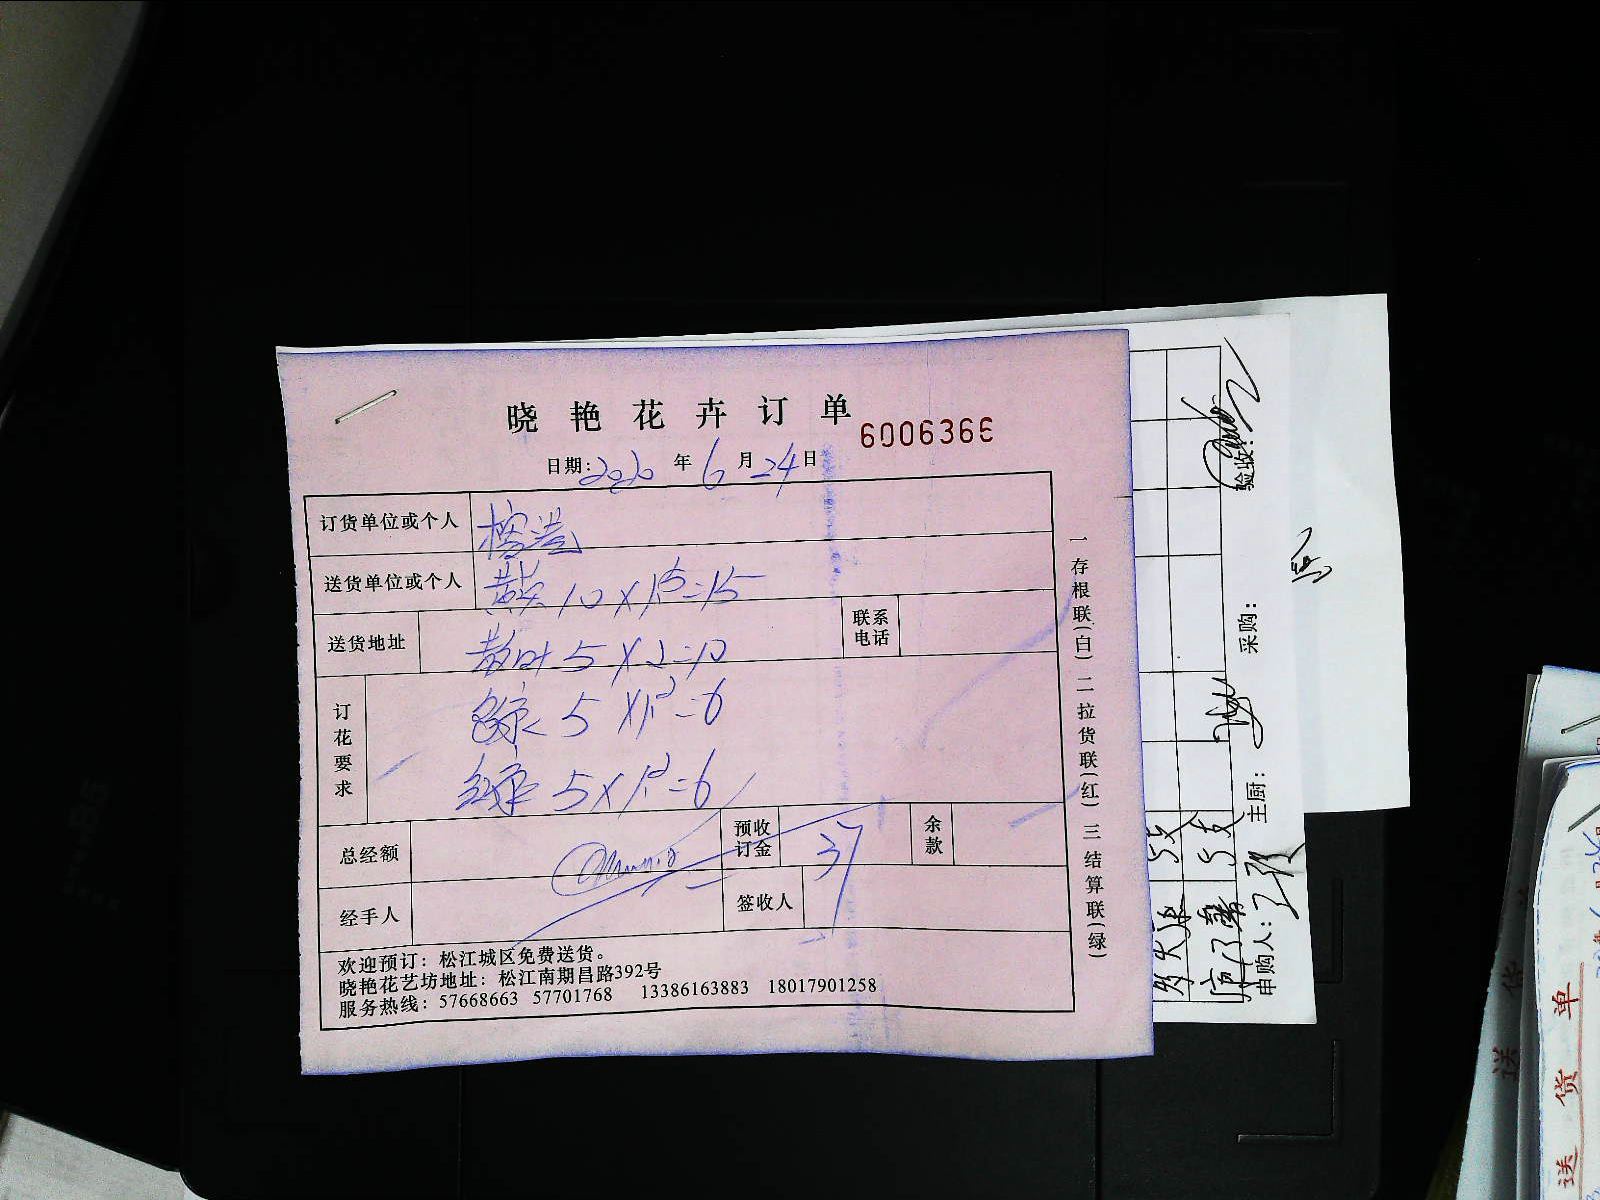 晓艳花卉订单
6006366
日期:2020年6月24日
订货单位或个人
送货单位或个人 10×1.5=15
送货地址 5×2=10 联系电话
订花要求
5×1.2=6
5×1.2=6
总经额 预收订金 37 余款
经手人 签收人
欢迎预订：松江城区免费送货。
晓艳花艺坊地址：松江南期昌路392号
服务热线：57668663 57701768 13386163883 18017901258
一存根联(白) 二拉货联(红) 三结算联(绿)
验收:
采购:
主厨:
申购人:
5支
15支
送货单
送货单